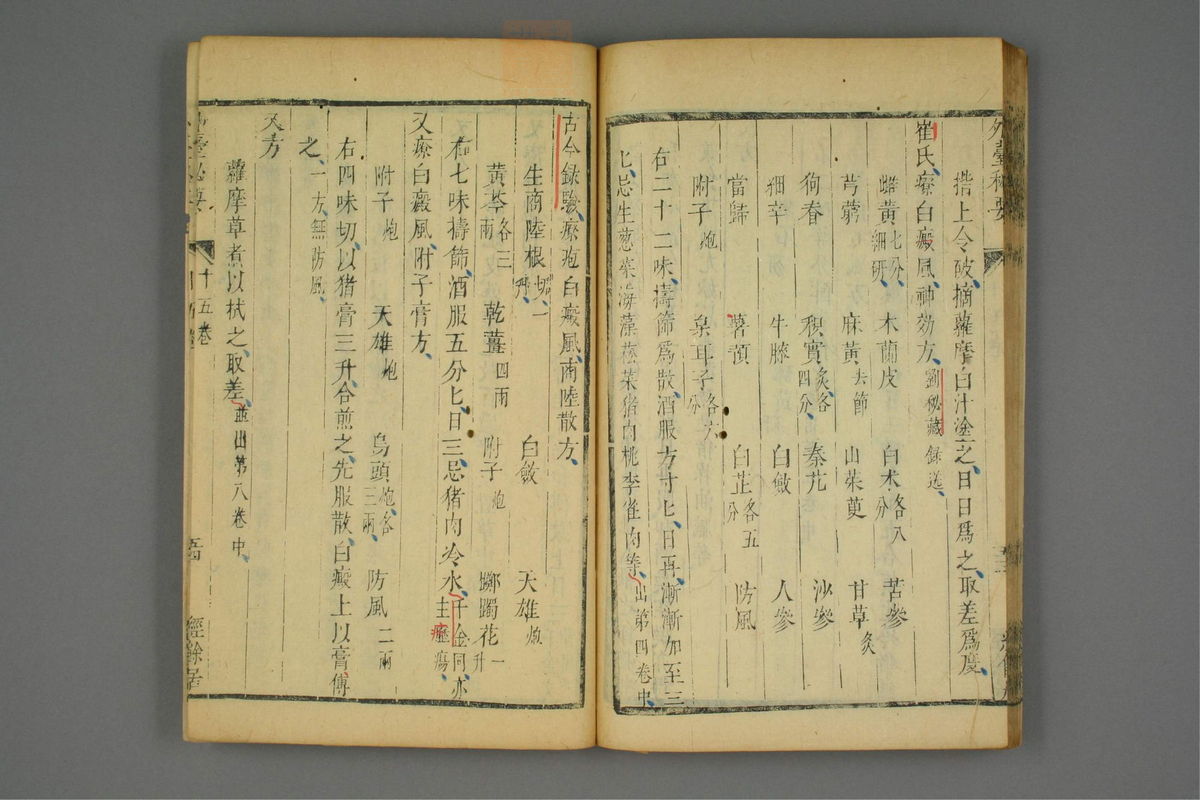 外臺秘要
揩上令破摘蘿摩白汁塗之日日為之取差為度
崔氏療白癜風神効方劉秘藏録送
雄黃七分細研 木蘭皮 白朮各八分 苦參
芎藭 麻黃去節 山茱萸 甘草炙
狗脊 枳實炙各四分 秦艽 沙參
細辛 牛膝 白斂 人參
當歸 薯蕷 白芷各五分 防風
附子炮 枲耳子各六分
右二十二味擣篩為散酒服方寸匕日再漸漸加至三
匕忌生葱菜海藻菘菜猪肉桃李雀肉等出第四卷中
古今録驗療疱白癜風商陸散方
生商陸根切一升 白斂 天雄炮
黃芩各三兩 乾薑四兩 附子炮 躑躅花一升
右七味擣篩酒服五分匕日三忌猪肉冷水千金同亦主癧瘍
又療白癜風附子膏方
附子炮 天雄炮 烏頭炮各三兩 防風二兩
右四味切以猪膏三升合煎之先服散白癜上以膏傅
之一方無防風
又方
蘿摩草煮以拭之取差並出第八卷中
外臺秘要 十五卷 経餘居